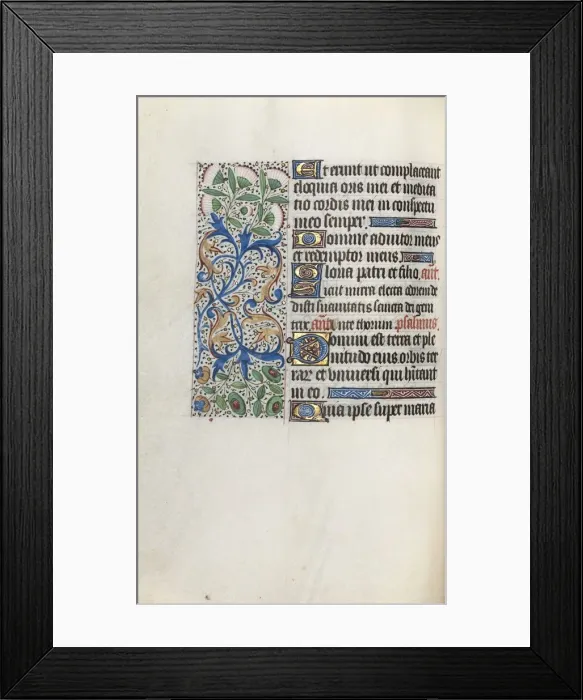 Et erunt ut complaceant
eloquia oris mei et medita
tio cordis mei in conspectu
meo semper.
Domine adiutor meus
et redemptor meus.
Gloria patri et filio. ant.
Sicut mirra electa odorem de
disti suavitatis sancta dei geni
trix. ant. ante thorum psalmus.
Domini est terra et ple
nitudo eius orbis ter
rarum et universi qui habitant
in eo.
Quia ipse super maria